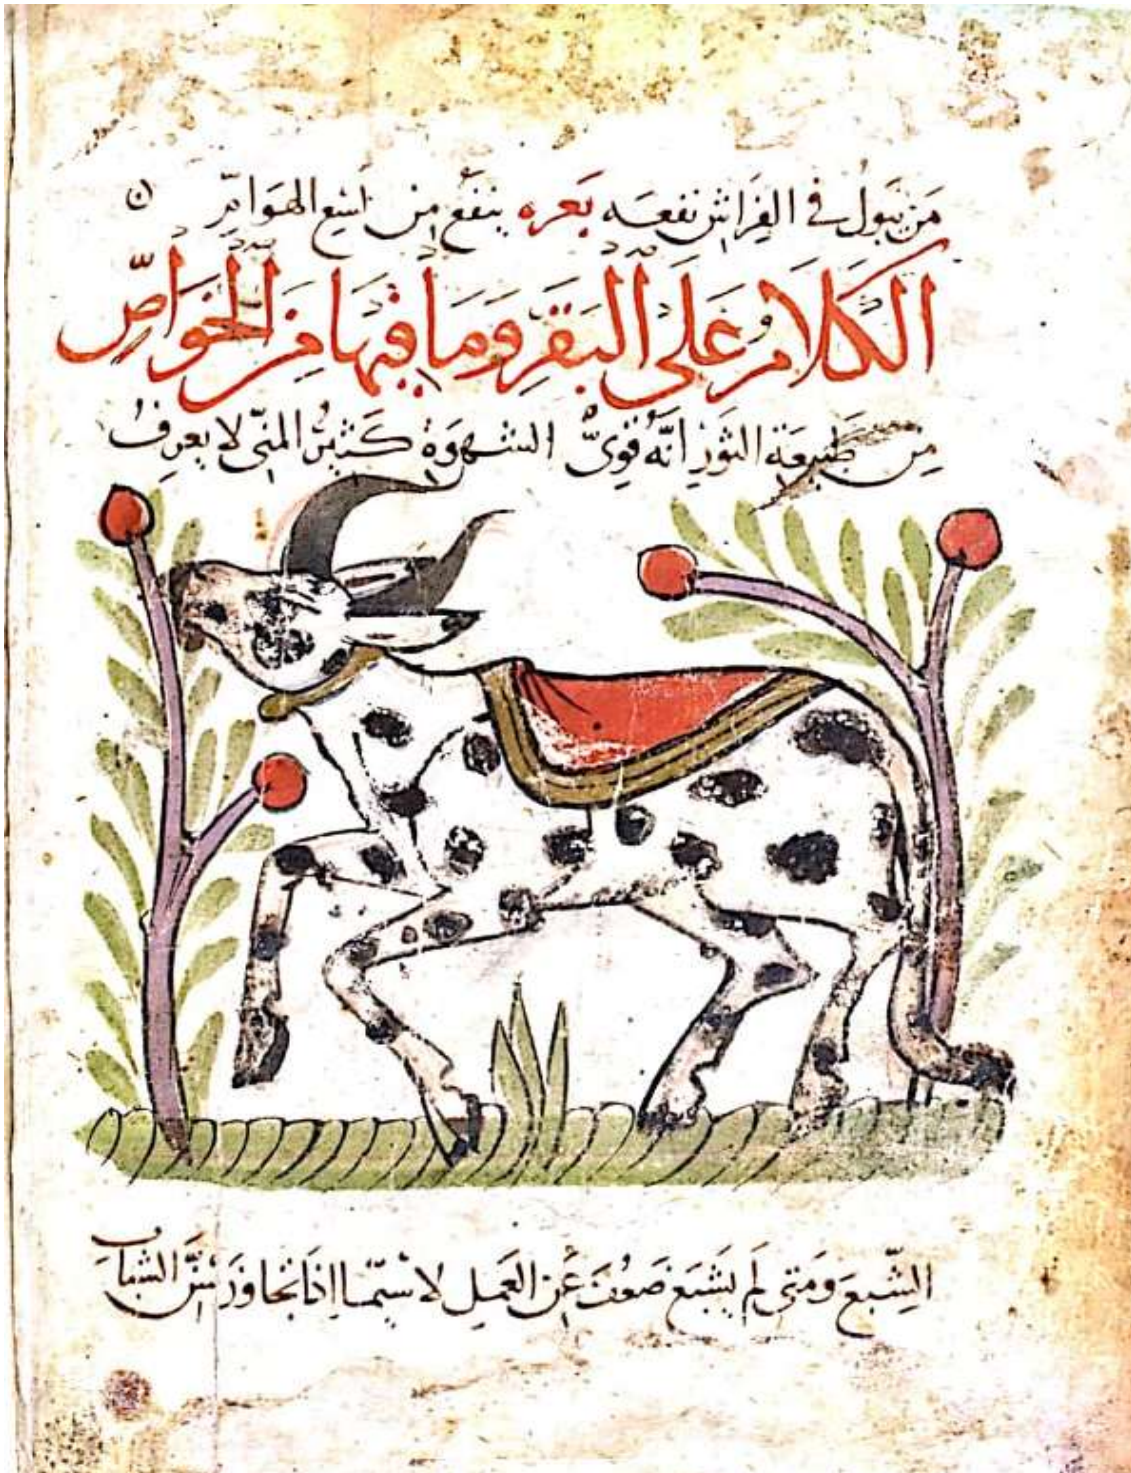 مَن يَبُول في الفِرَاش نفعَه بَعره ينفَع مِن لسْع الهَوَامّ ن
الكَلَامُ عَلَى البَقَرِ وَمَا فِيهَا مِنَ الخَوَاصّ
مِن طَبِيعَة الثَور انّه قَوِىُّ الشهوَة كَثيرُ المنِّى لا يعرِفُ
الشِّبعَ وَمَتى لَم يَشبَع ضَعُفَ عَن العَمل لا سيّما اذَا تَجاوَزَ سِنَّ الشبَاب